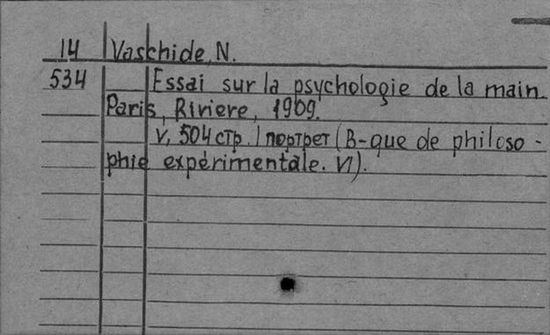 14 Vaschide, N.
534 Essai sur la psychologie de la main.
Paris, Riviere, 1909.
V, 504 стр. 1 портрет (B-que de philoso-
phie expérimentale. VI).